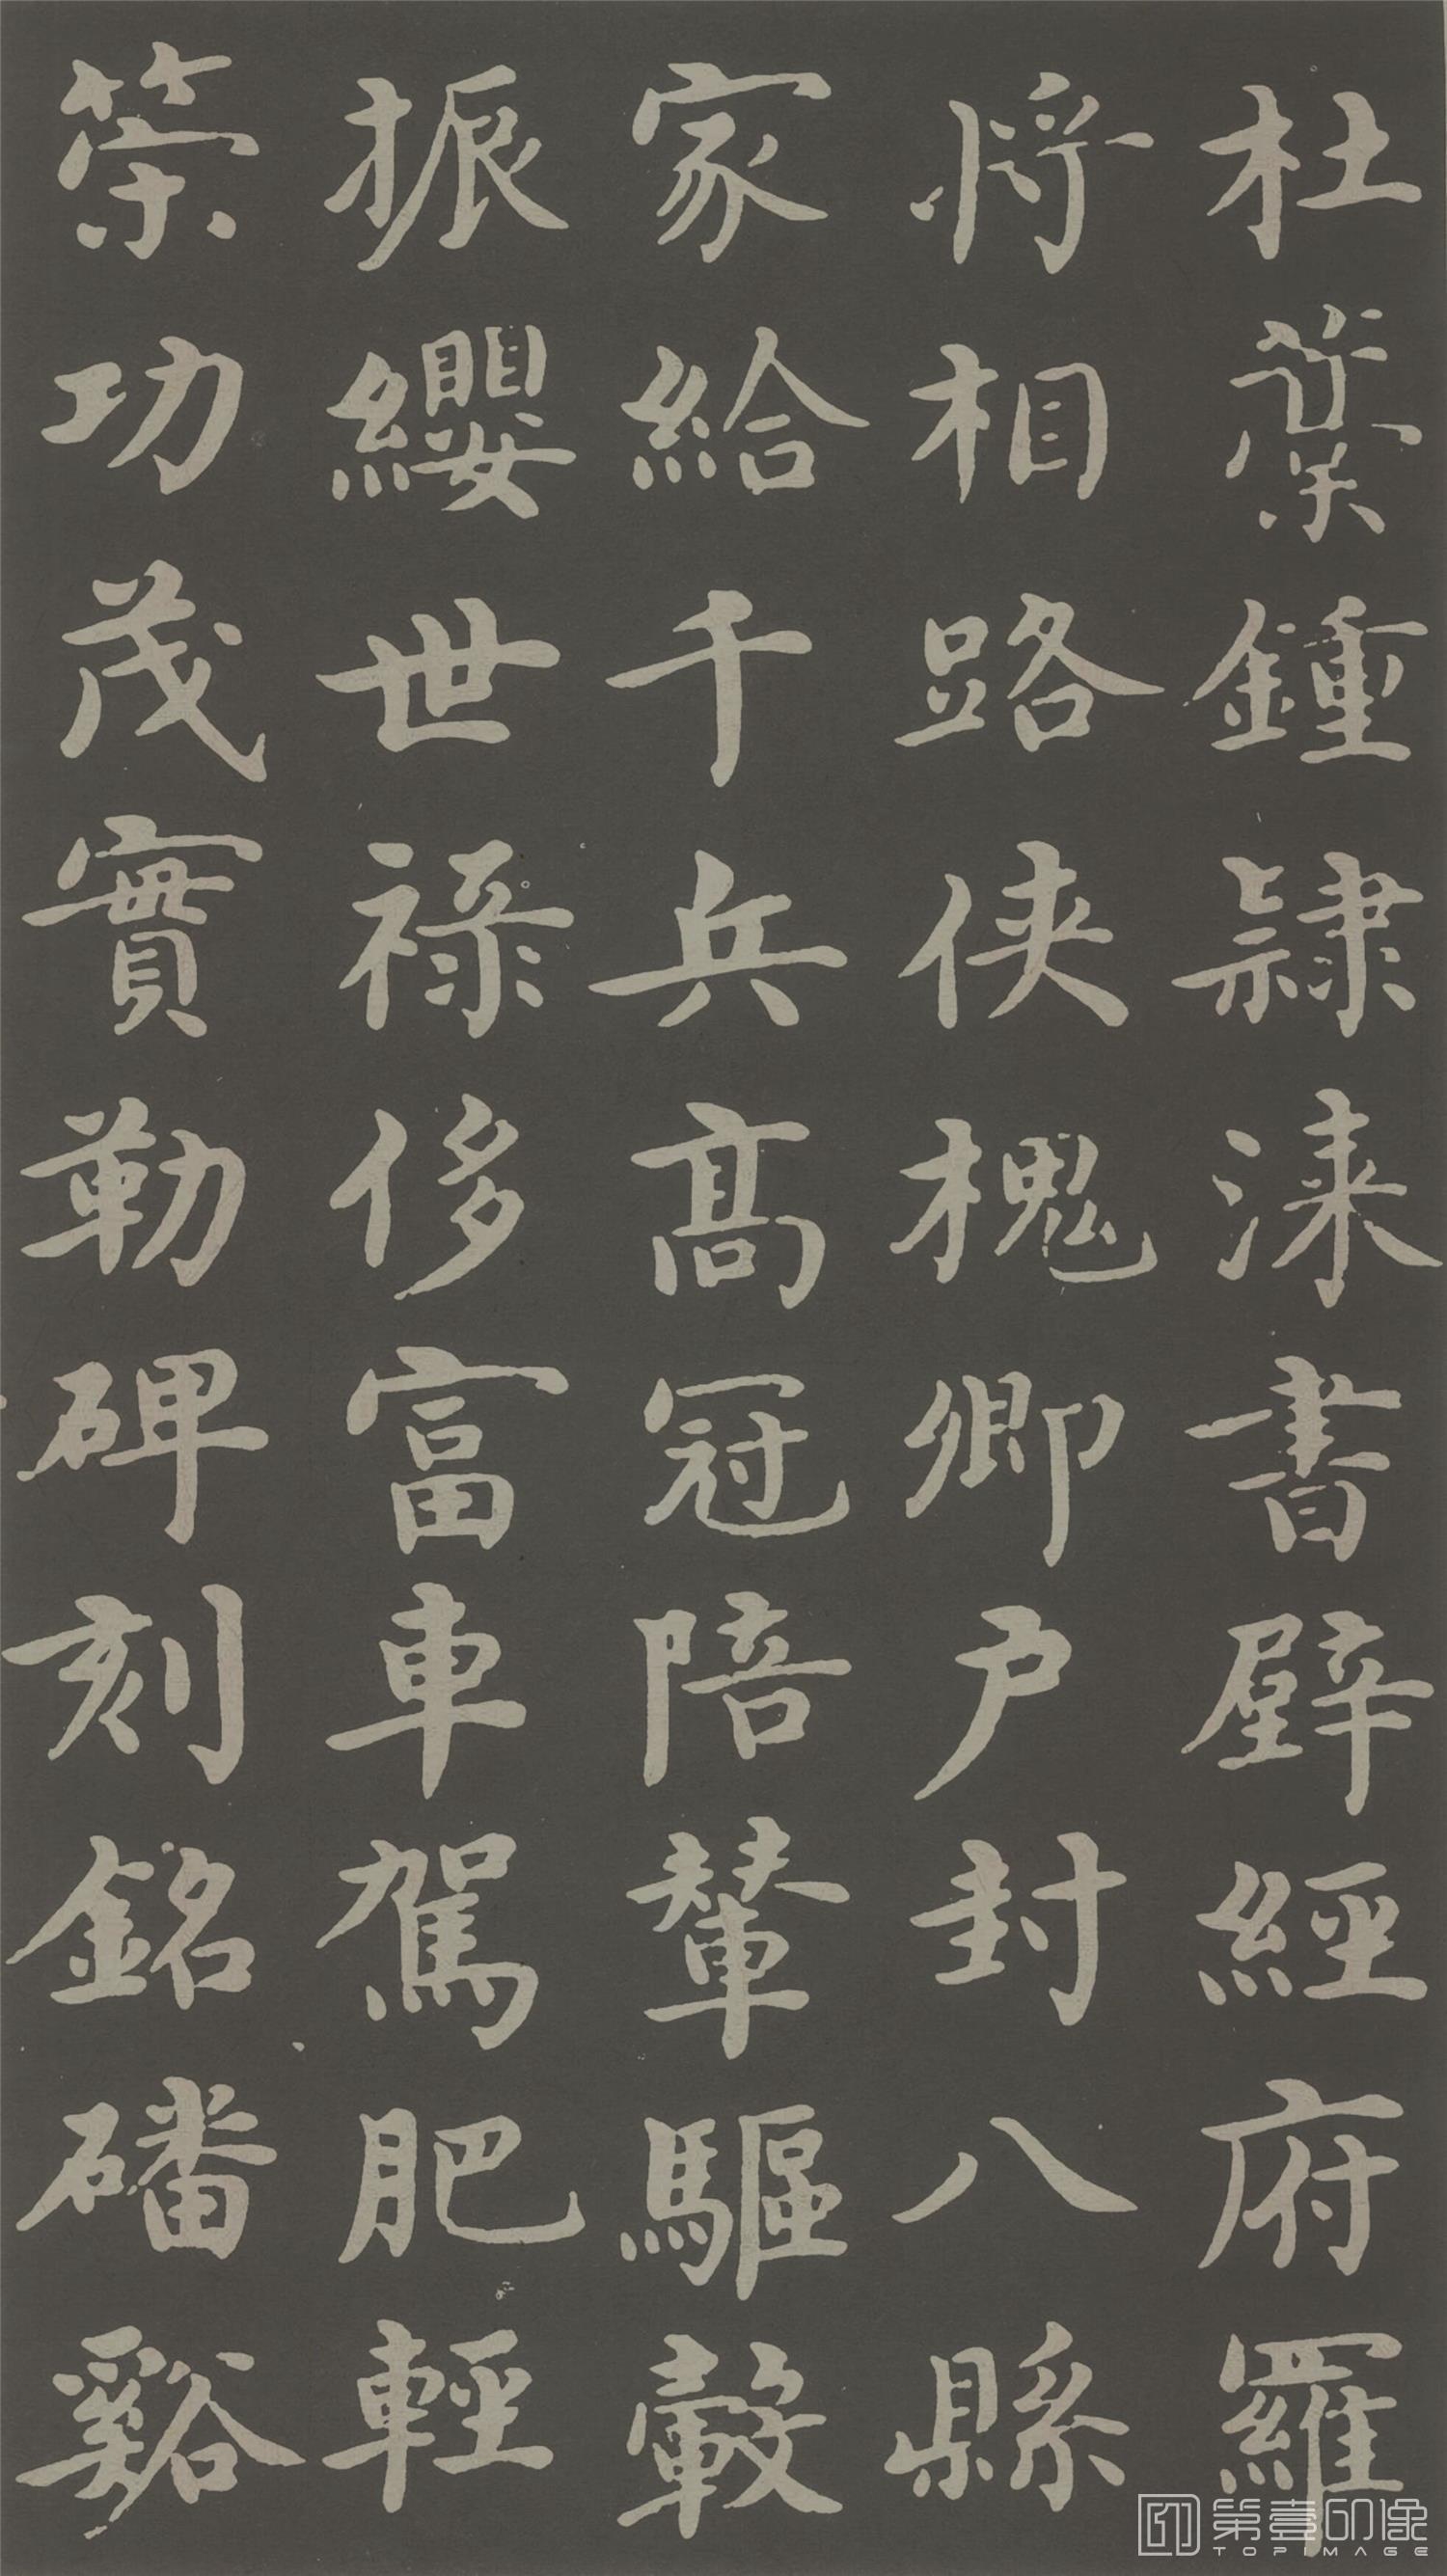 杜稾鍾隸漆書壁經府羅
將相路俠槐卿户封八縣
家給千兵髙冠陪輦驅轂
振纓世祿侈富車駕肥輕
策功茂實勒碑刻銘磻谿
第壹印像
TOPIMAGE